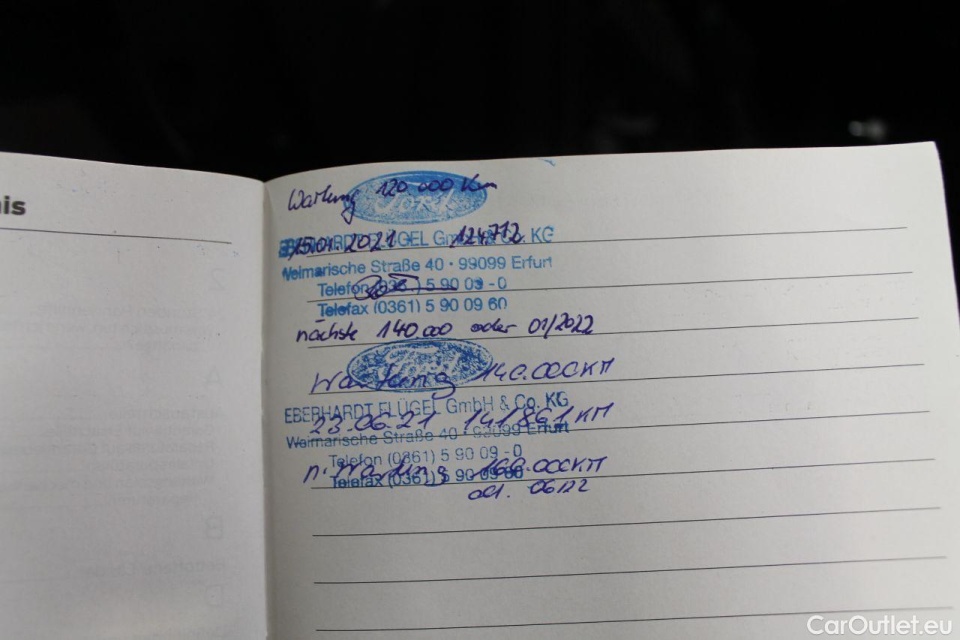 nis
Wartung 120 000 km
Ford
15.01.2021 124.712
EBERHARDT FLÜGEL GmbH & Co. KG
Weimarische Straße 40 · 99099 Erfurt
Telefon (0361) 5 90 09 - 0
Telefax (0361) 5 90 09 60
nächste 140.000 oder 01/2022
Wartung 140.000KM
EBERHARDT FLÜGEL GmbH & Co. KG
23.06.21 141861 KM
Weimarische Straße 40 · 99099 Erfurt
Telefon (0361) 5 90 09 - 0
n. Wartung 160.000KM
Telefax (0361) 5 90 09 60
od. 06.22
CarOutlet.eu